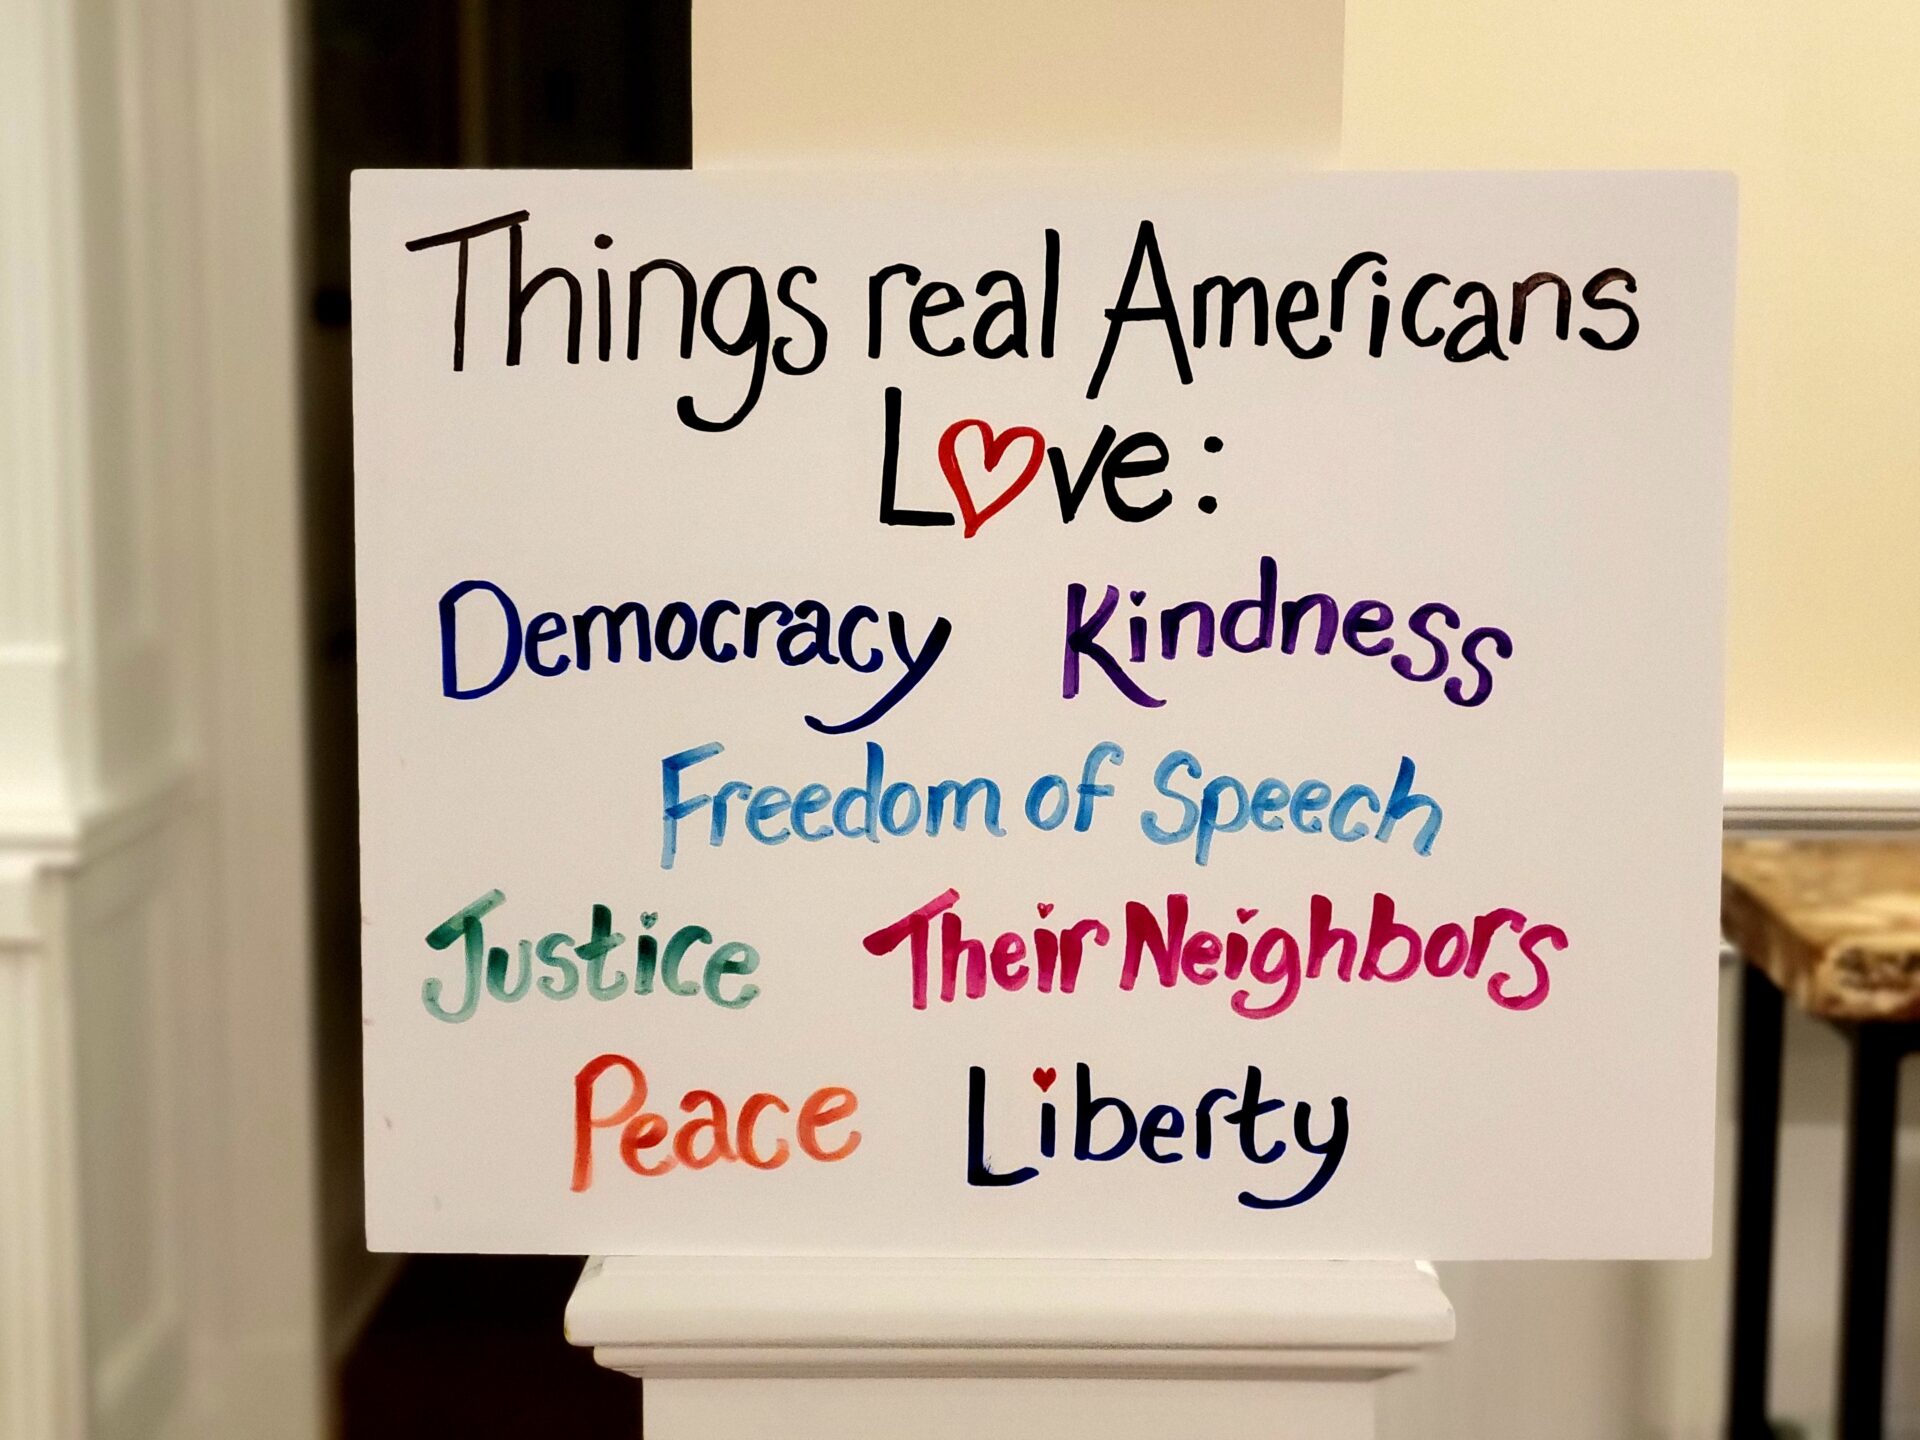 Things real Americans
Love:
Democracy Kindness
Freedom of Speech
Justice Their Neighbors
Peace Liberty